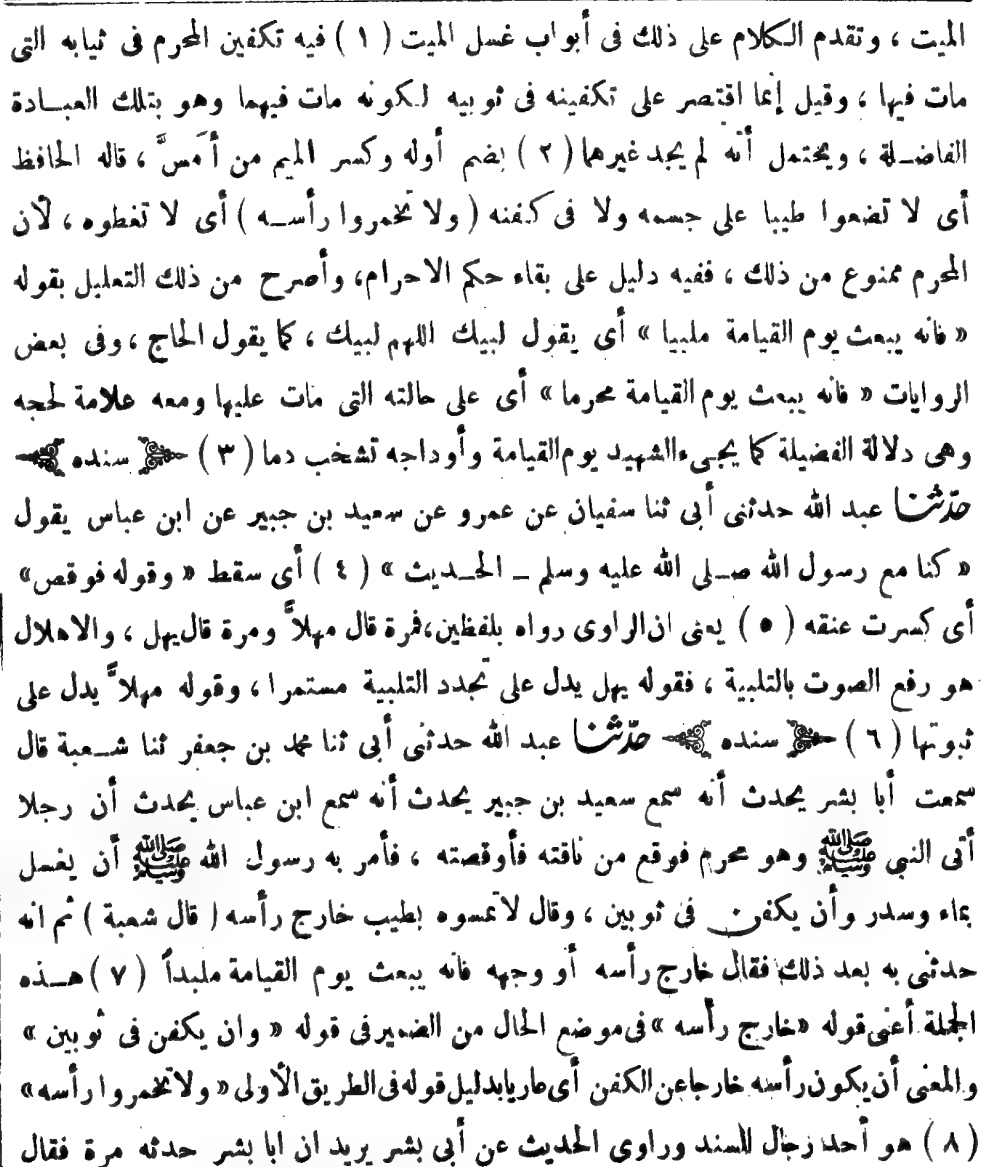 الميت ، وتقدم الكلام على ذلك فى أبواب غسل الميت ( ١ ) فيه تكفين المحرم فى ثيابه التى
مات فيها ، وقيل إنما اقتصر على تكفينه فى ثوبيه لكونه مات فيهما وهو بتلك العبادة
الفاضلة ، ويحتمل أنه لم يجد غيرهما ( ٢ ) بضم أوله وكسر الميم من أمسَّ ، قاله الحافظ
أى لا تضعوا طيبا على جسمه ولا فى كفنه ( ولا تخمروا رأسه ) أى لا تغطوه ، لأن
المحرم ممنوع من ذلك ، ففيه دليل على بقاء حكم الاحرام، وأصرح من ذلك التعليل بقوله
« فانه يبعث يوم القيامة ملبيا » أى يقول لبيك اللهم لبيك ، كما يقول الحاج ، وفى بعض
الروايات « فانه يبعث يوم القيامة محرما » أى على حالته التى مات عليها ومعه علامة لحجه
وهى دلالة الفضيلة كما يجىء الشهيد يوم القيامة وأوداجه تشخب دما ( ٣ ) سنده
حدّثنا عبد الله حدثنى أبى ثنا سفيان عن عمرو عن سعيد بن جبير عن ابن عباس يقول
« كنا مع رسول الله صلى الله عليه وسلم ـ الحديث » ( ٤ ) أى سقط « وقوله فوقص»
أى كسرت عنقه ( ٥ ) يعنى ان الراوى رواه بلفظين،فمرة قال مهلاًّ ومرة قال يهل ، والاهلال
هو رفع الصوت بالتلبية ، فقوله يهل يدل على تجدد التلبية مستمرا ، وقوله مهلاًّ يدل على
ثبوتها ( ٦ ) سنده حدّثنا عبد الله حدثنى أبى ثنا محمد بن جعفر ثنا شعبة قال
سمعت أبا بشر يحدث أنه سمع سعيد بن جبير يحدث أنه سمع ابن عباس يحدث أن رجلا
أتى النبى ﷺ وهو محرم فوقع من ناقته فأوقصته ، فأمر به رسول الله ﷺ أن يغسل
بماء وسدر وأن يكفن فى ثوبين ، وقال لا تمسوه بطيب خارج رأسه ( قال شعبة ) ثم انه
حدثنى به بعد ذلك فقال خارج رأسه أو وجهه فانه يبعث يوم القيامة ملبداً ( ٧ ) هذه
الجملة أعنى قوله «خارج رأسه » فى موضع الحال من الضمير فى قوله « وان يكفن فى ثوبين »
والمعنى أن يكون رأسه خارجا عن الكفن أى عاريا بدليل قوله فى الطريق الأولى « ولا تخمروا رأسه»
( ٨ ) هو أحد رجال السند وراوى الحديث عن أبى بشر يريد ان ابا بشر حدثه مرة فقال